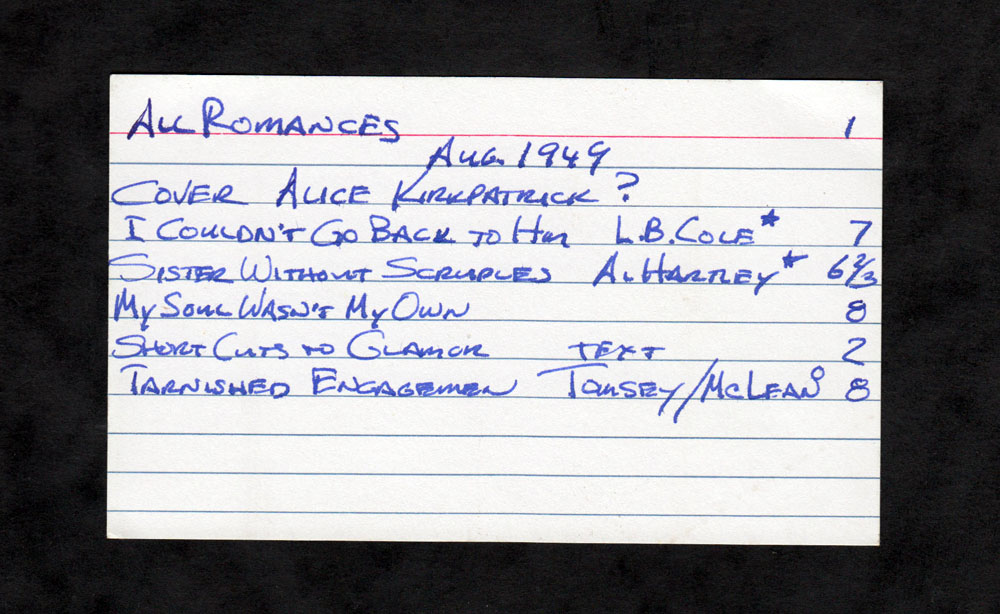 All Romances 1
Aug. 1949
Cover Alice Kirkpatrick ?
I Couldn't Go Back to Him L.B. Cole★ 7
Sister Without Scruples A. Hartley★ 6 2/3
My Soul Wasn't My Own 8
Short Cuts to Glamor text 2
Tarnished Engagemen /McLean° 8